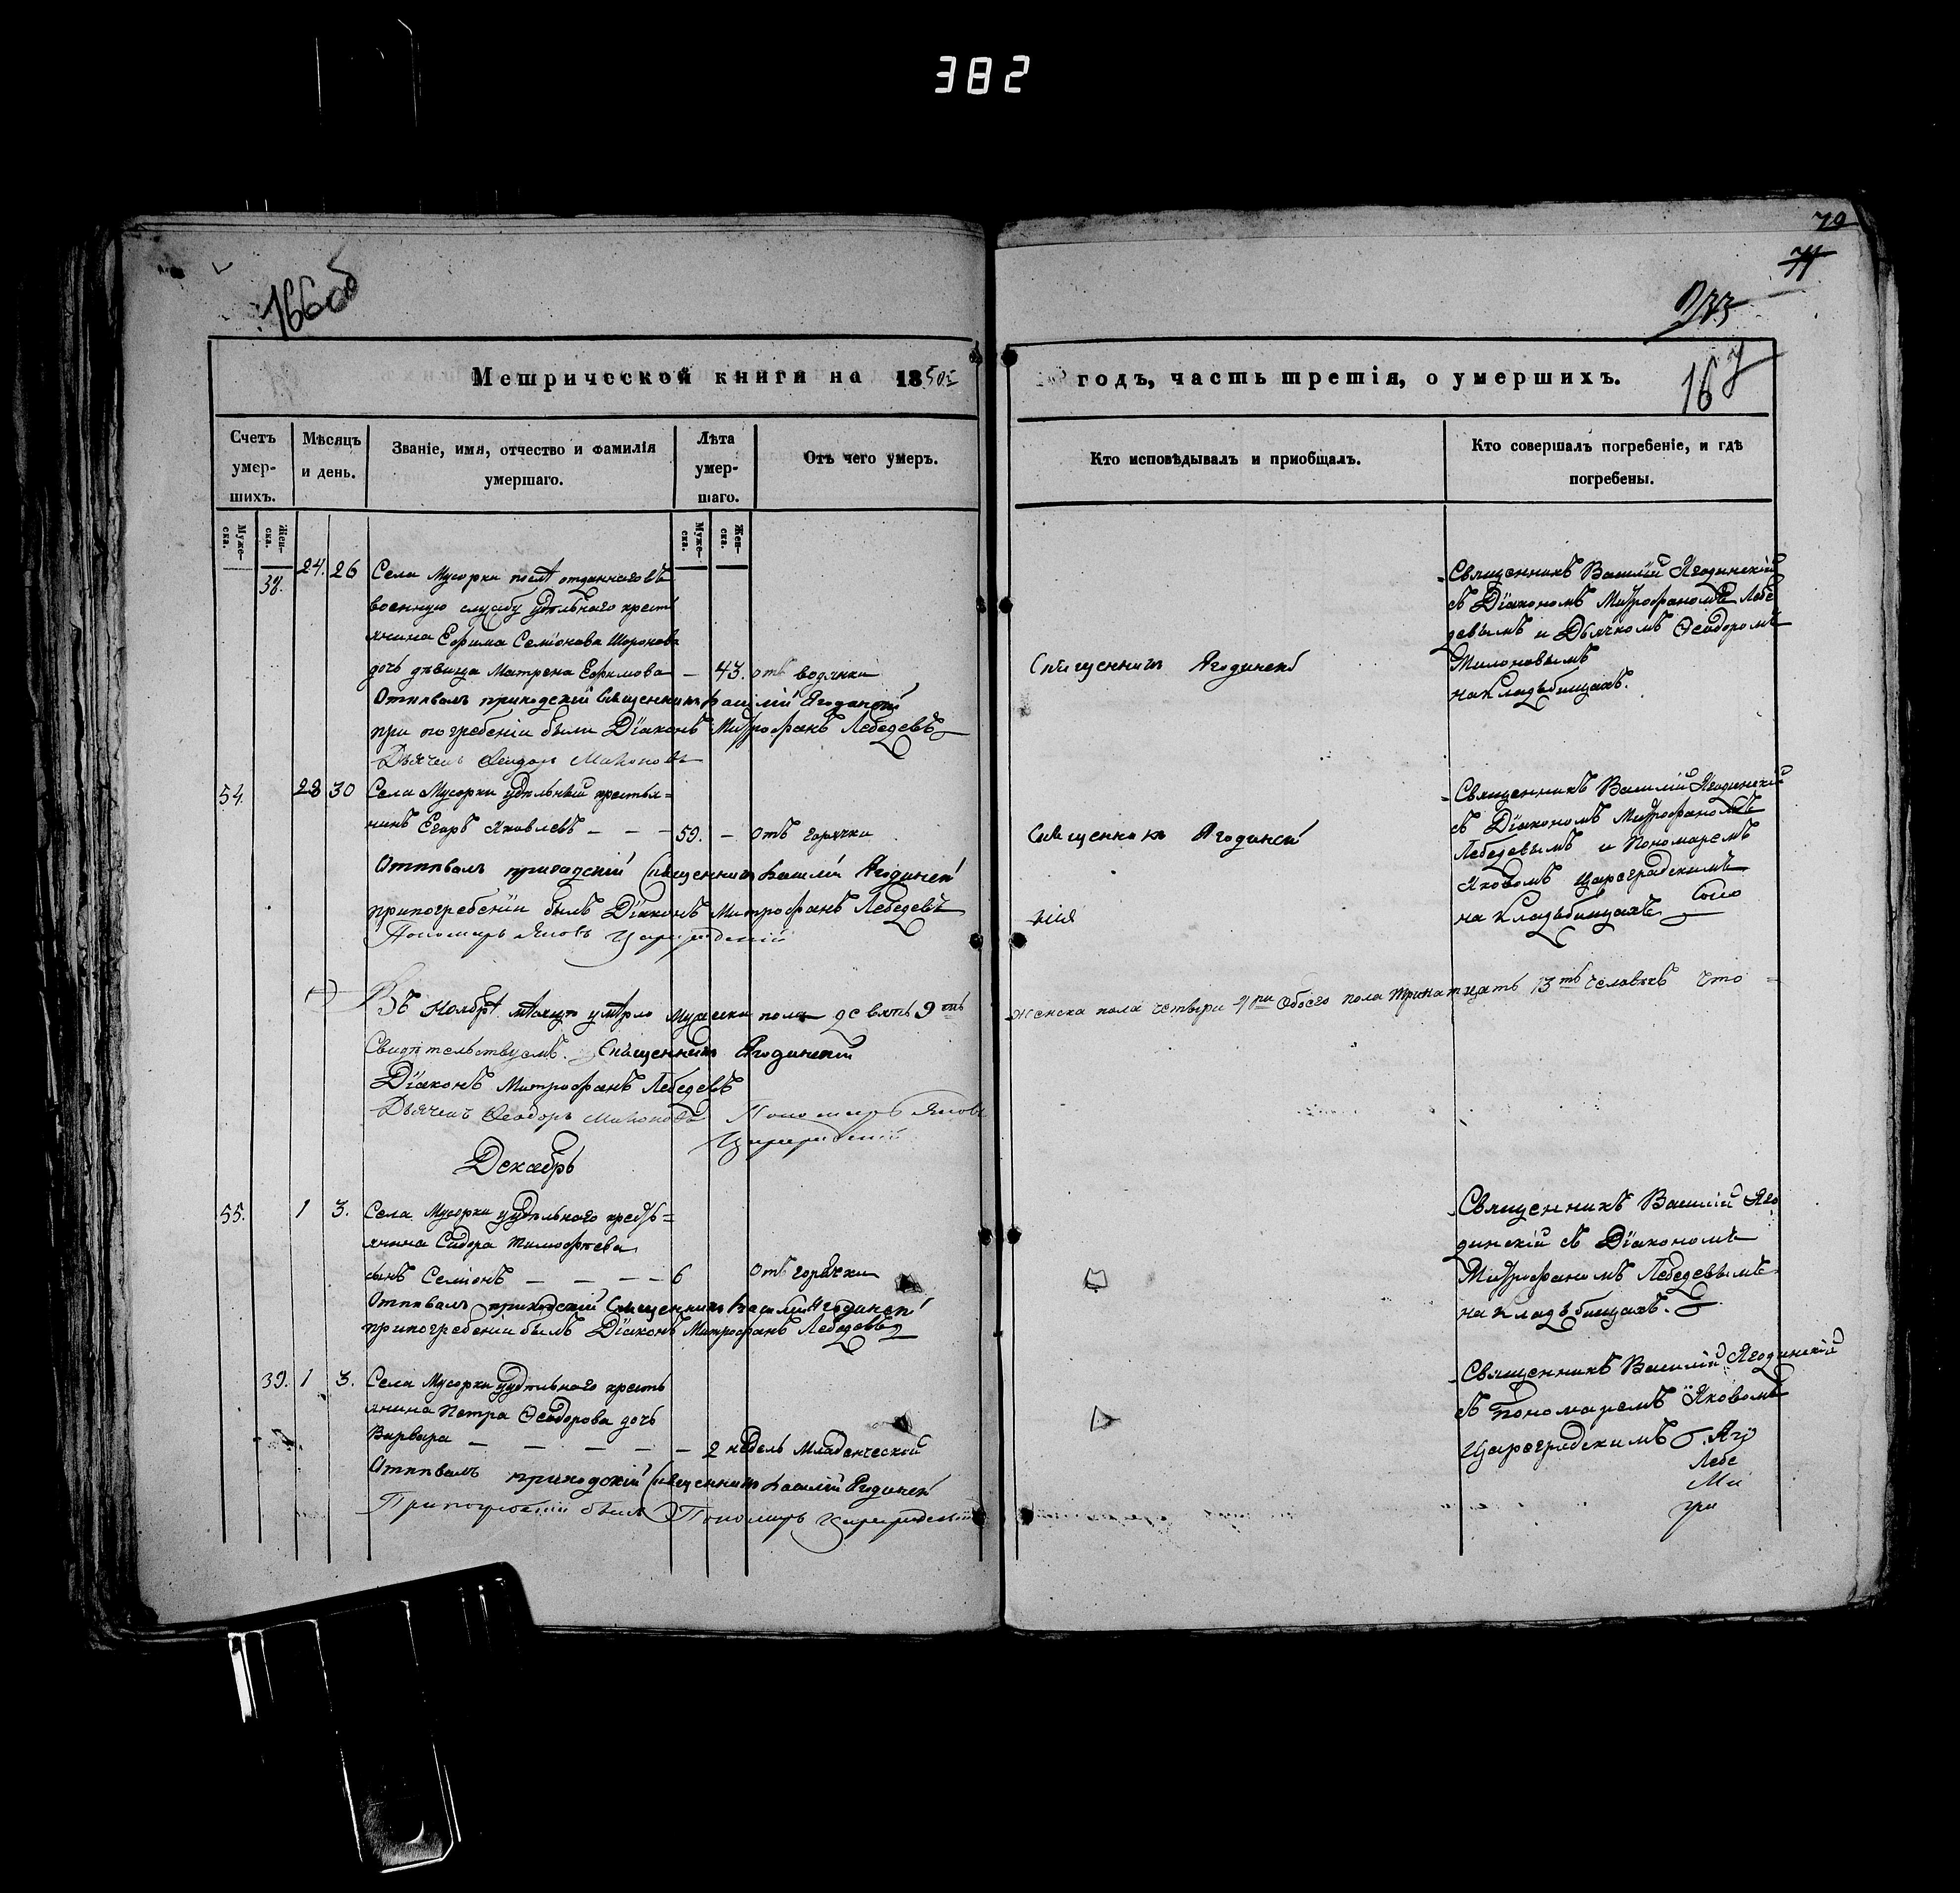 382
79
71
166об
167
Метрической книги на 1850й
годъ, часть третія, о умершихъ.
Счетъ умер-шихъ.
Мѣсяцъ и день.
Званіе, имя, отчество и фамилія умершаго.
Лѣта умер-шаго.
Отъ чего умеръ.
Кто исповѣдывалъ и приобщалъ.
Кто совершалъ погребеніе, и гдѣ погребены.
Муже-ска.
Жен-ска.
Муже-ска.
Жен-ска.
38. 24. 26 Села Мусорки послѣ отданнаго въ
военную службу удѣльнаго крестъ
янина Ефима Семіонова
дочь дѣвица Матрена Ефимова — 43. отъ водянки
Отпѣвалъ приходскій Священникъ Василій Ягодинскій
при погребеніи были Діаконъ Митрофанъ Лебедевъ
Дьячекъ Ѳеодоръ
Священникъ Ягодинскій
Священникъ Василій Ягодинскій
съ Діакономъ Митрофаномъ Лебе
девымъ и Дьячкомъ Ѳеодоромъ
на Кладьбищахъ.
54. 28 30 Села Мусорки удѣльный крестья=
нинъ Егоръ Яковлевъ — — — 59. — Отъ горячки
Отпѣвалъ приходскій Священникъ Василій Ягодинскій
при погребеніи былъ Діаконъ Митрофанъ Лебедевъ
Пономарь Яковъ Цареградскій
Священникъ Ягодинскій
нія
Священникъ Василій Ягодинскій
съ Діакономъ Митрофаномъ
Лебедевымъ и Пономаремъ
Яковомъ Цареградскимъ
на Кладьбищахъ
Въ Ноябрѣ мѣсяцѣ умѣрло Мужеска пола девять 9ть
женска пола четыри 4ри Обоего пола тринатцать 13ть человѣкъ Что =
Свидѣтельствуемъ. Священникъ Ягодинскій
Діаконъ Митрофанъ Лебедевъ
Дьячекъ Ѳеодоръ
Пономарь Яковъ
Цареградскій
Декабрь
55. 1 3. Села Мусорки удѣльнаго крестъ=
янина Сидора Тимофѣева
сынъ Семіонъ — — — — 6 Отъ горячки
Отпѣвалъ приходскій Священникъ Василій Ягодинскій
при погребеніи былъ Діаконъ Митрофанъ Лебедевъ
Священникъ Василій Яго
динскій съ Діакономъ
Митрофаномъ Лебедевымъ
на Кладьбищахъ.
39. 1 3. Села Мусорки удѣльнаго кресть
янина Петра Ѳеодорова дочь
Варвара — — — — — 2 недель Младенческой
Отпѣвалъ приходскій Священникъ Василій Ягодинскій
При погребеніи былъ Пономарь Цареградскій
Священникъ Василій Ягодинскій
съ Пономаремъ Яковомъ
Цареградскимъ
Лебе
Ми